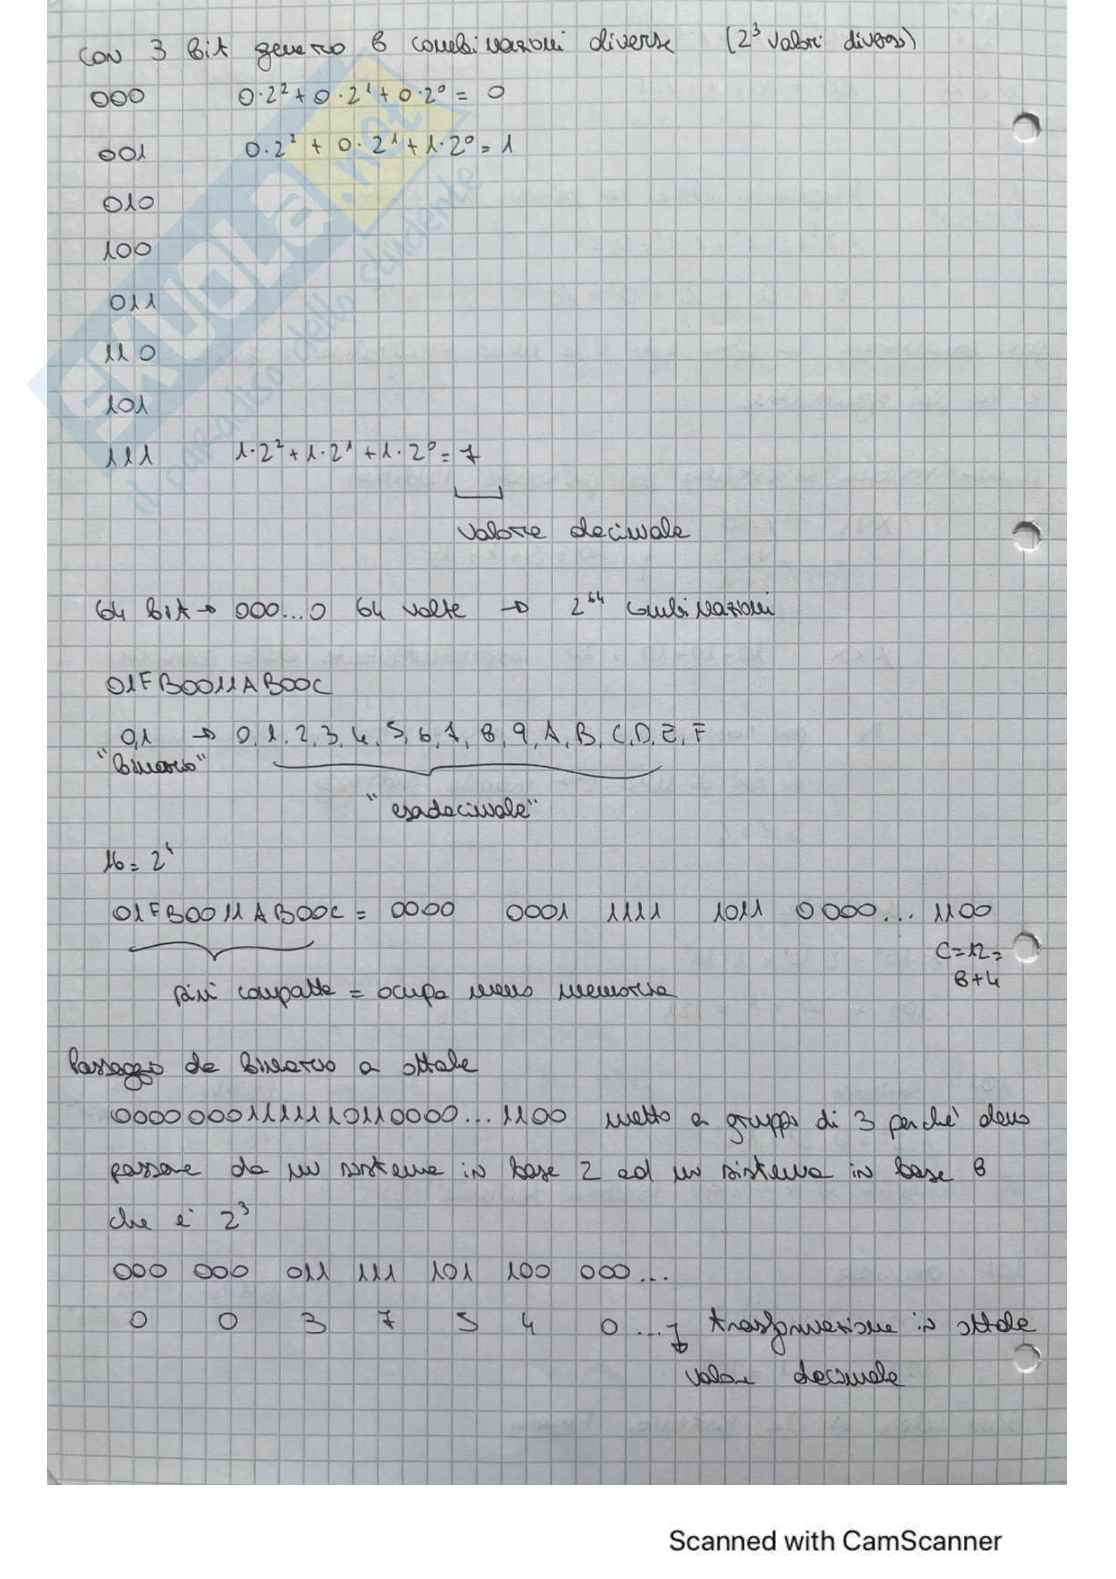 Con 3 bit genero 8 combinazioni diverse (2³ valori diversi)
000 0·2²+0·2¹+0·2⁰= 0
001 0·2²+0·2¹+1·2⁰=1
010
100
011
110
101
111 1·2²+1·2¹+1·2⁰=7
valore decimale
64 bit→ 000...0 64 volte → 2⁶⁴ combinazioni
01FB0011AB00C
0,1 → 0,1,2,3,4,5,6,7,8,9,A,B,C,D,E,F
"binario"
"esadecimale"
16=2⁴
01FB0011AB00C = 0000 0001 1111 1011 0000... 1100
C=12=
8+4
più compatta = ocupa meno memoria
Passaggio da binario a ottale
0000000111111011 0000...1100 metto a gruppi di 3 perché devo
passare da un sistema in base 2 ad un sistema in base 8
che è 2³
000 000 011 111 101 100 000...
0 0 3 7 5 4 0... trasformazione in ottale
valore decimale
SKUOLA.net
il paradiso dello studente
Scanned with CamScanner